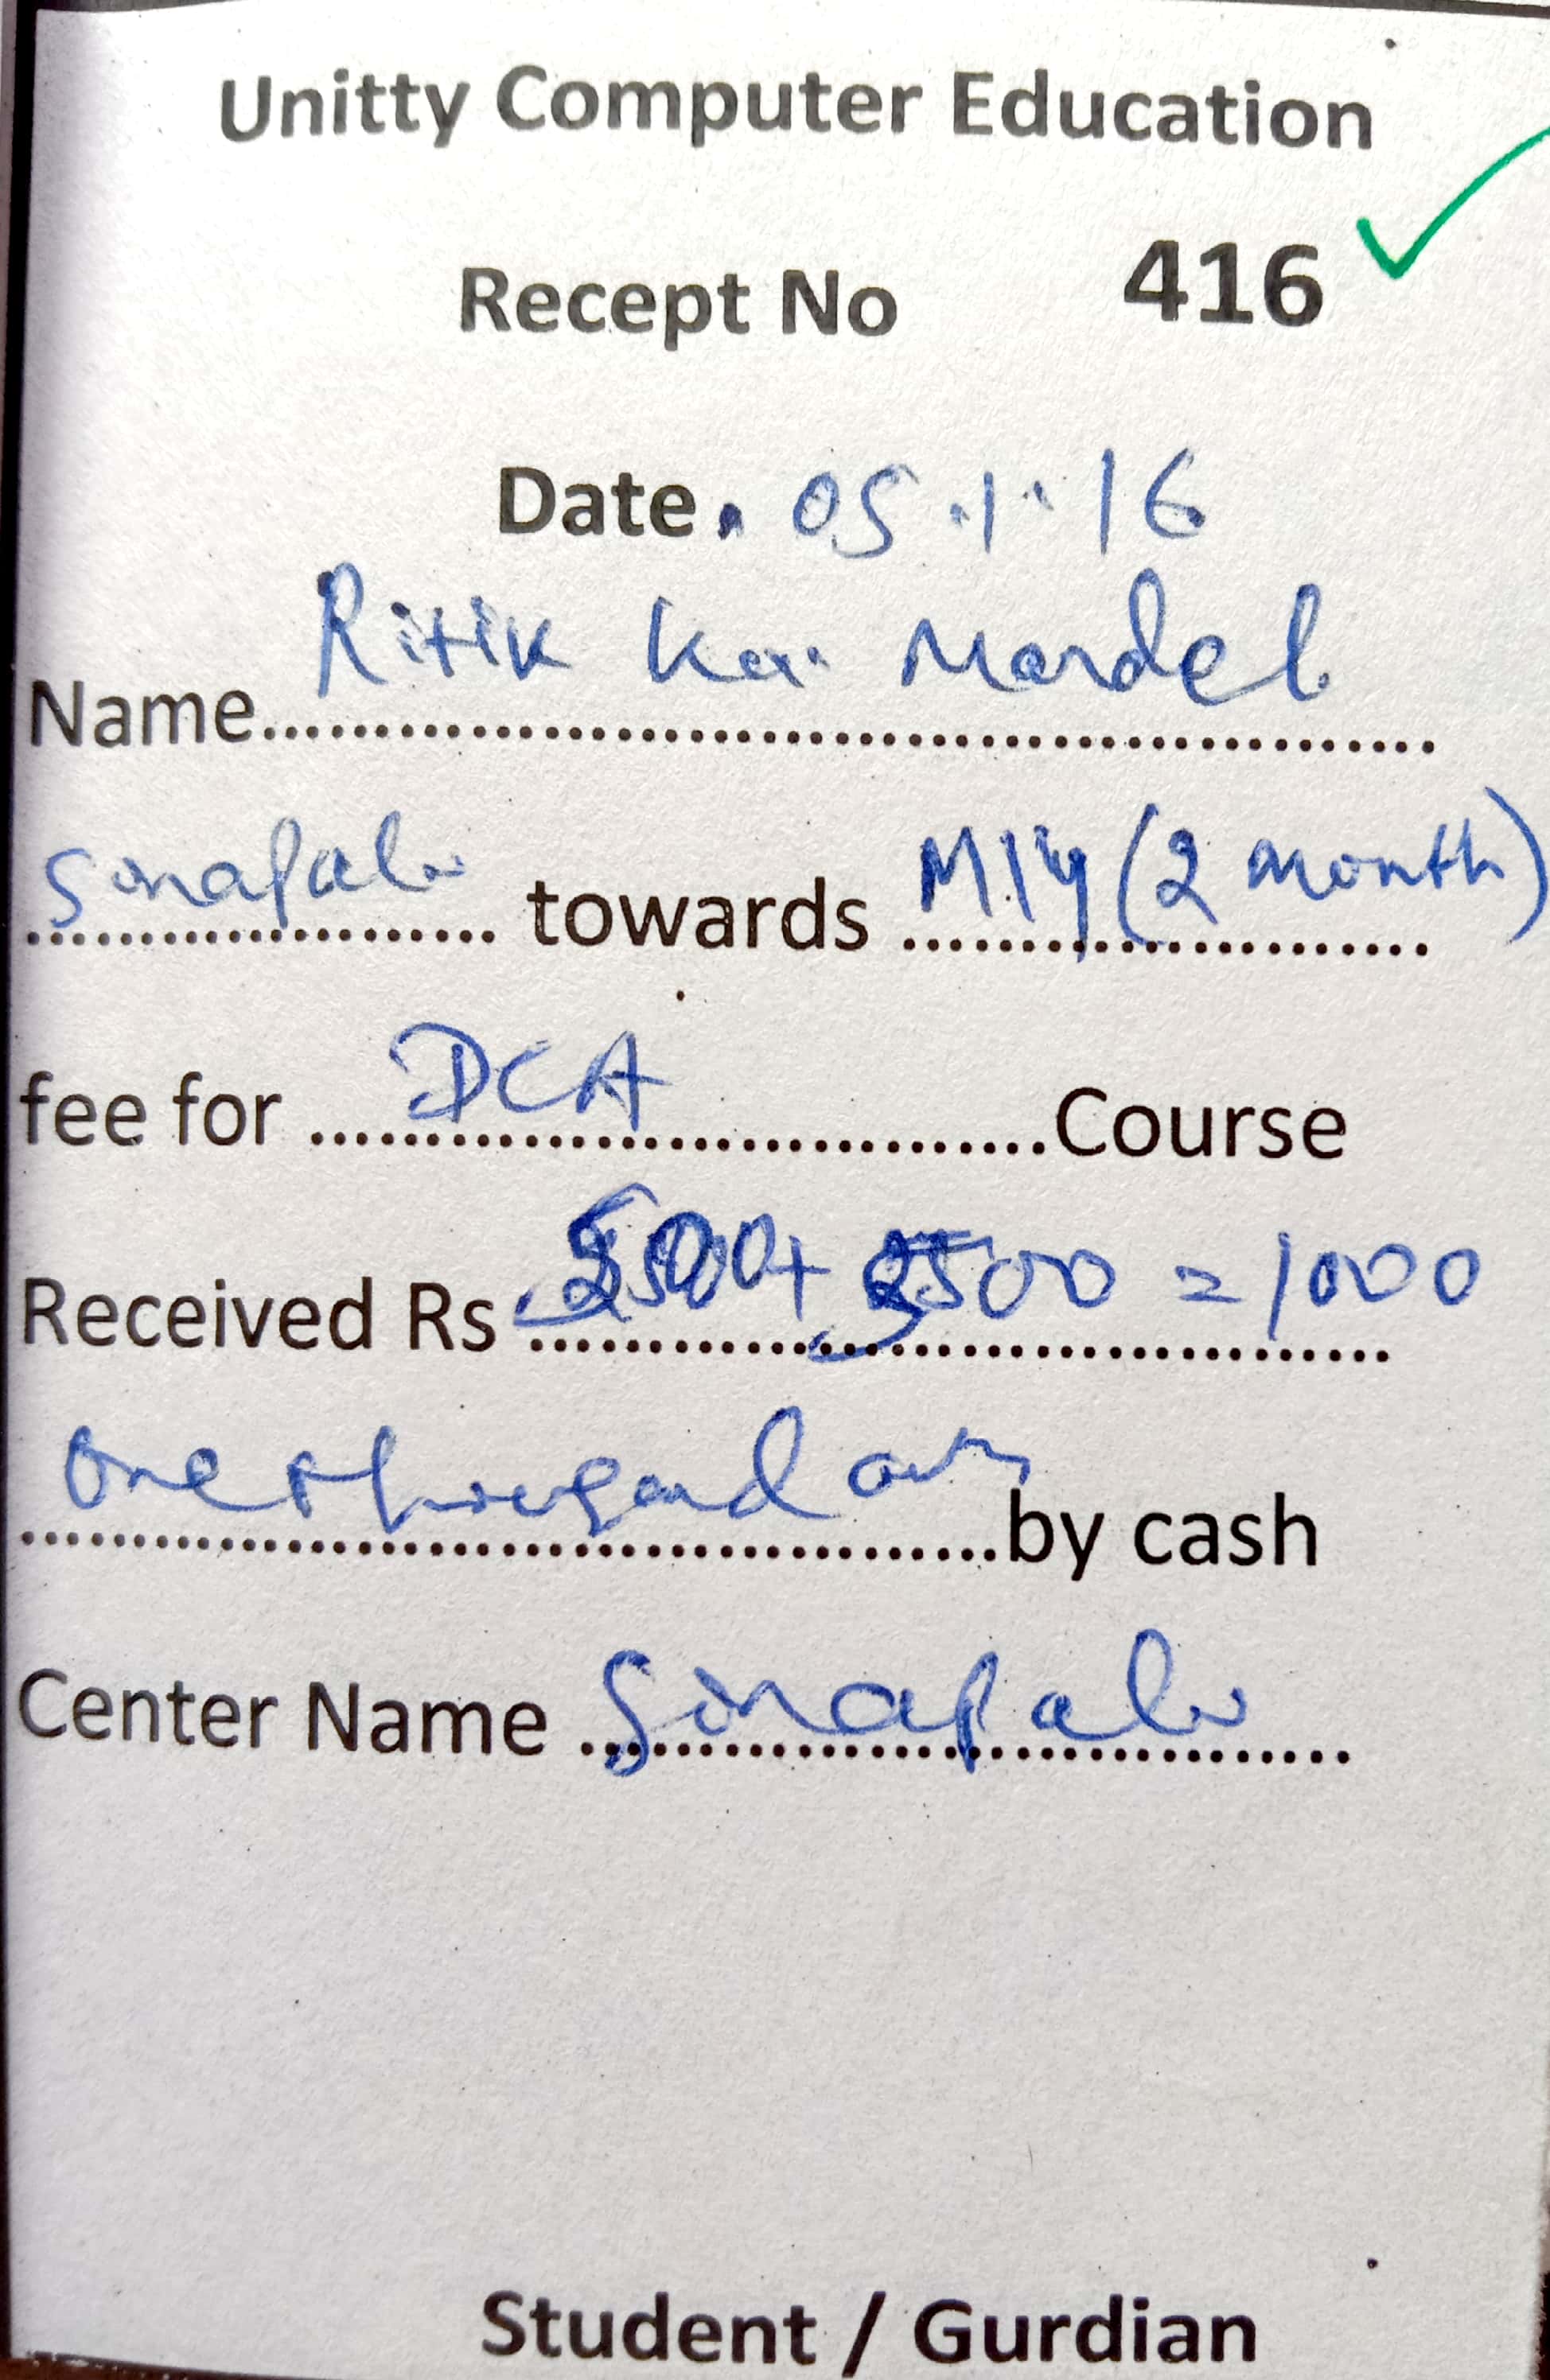 Unitty Computer Education
Recept No 416
Date. 05.1.16
Name Ritik Ku. Mandal
Sinapali towards Mly (2 month)
fee for DCA Course
Received Rs 500+ 500 = 1000
One thousand only by cash
Center Name Sinapali
Student / Gurdian